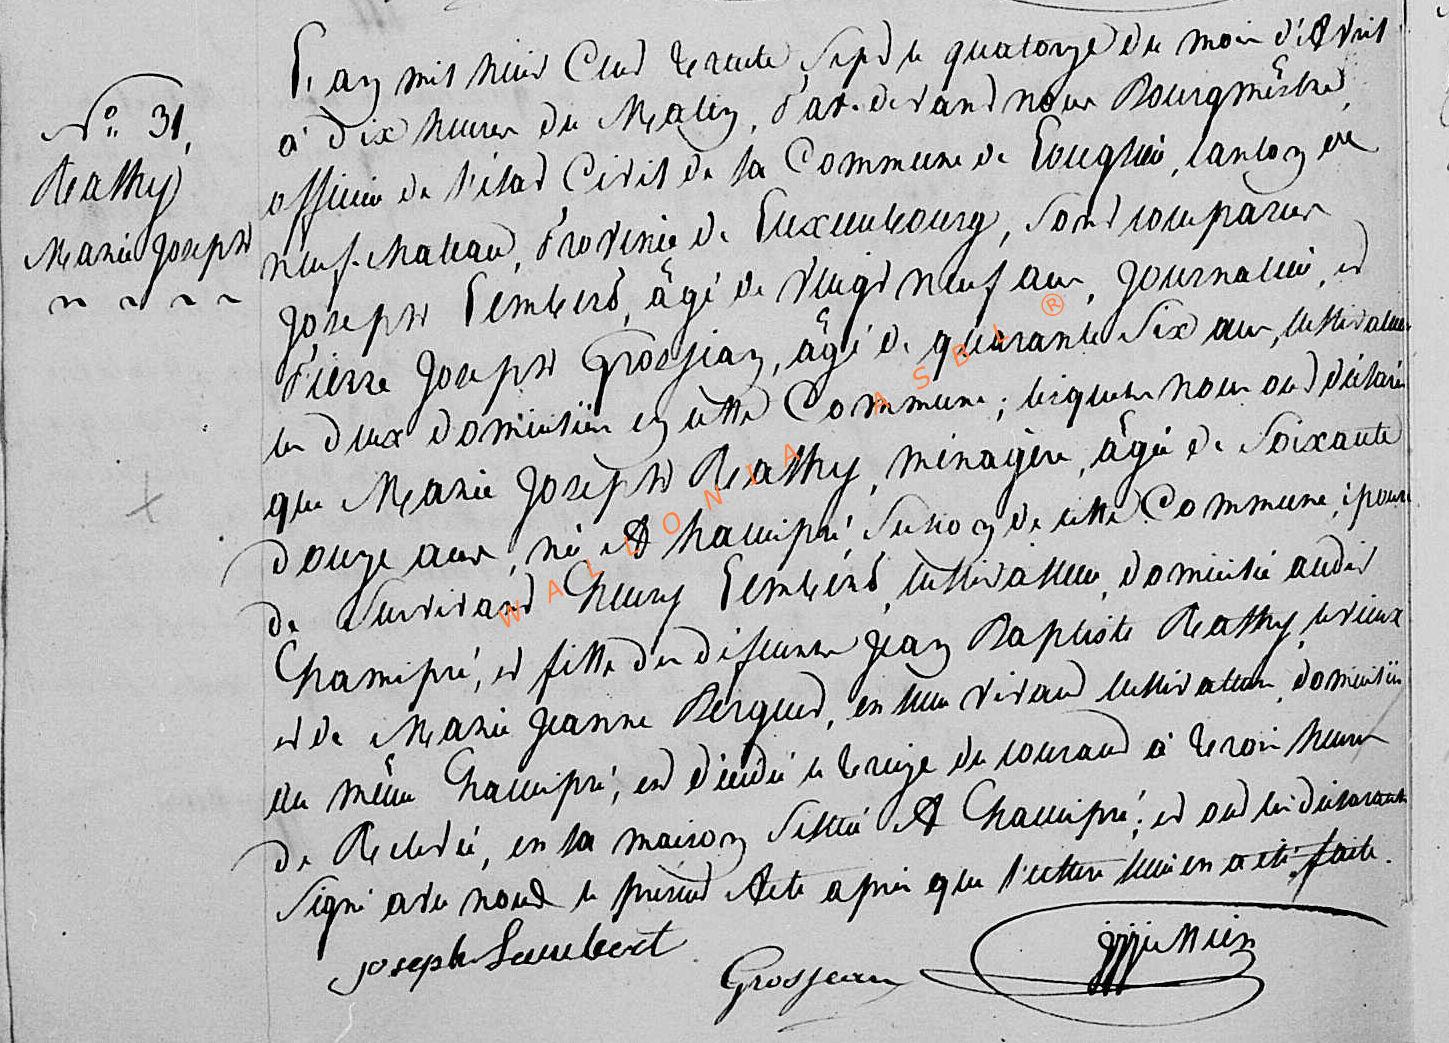 N° 31,
Reathy
Marie Joseph
L'an mil huit Cent trente Sept le quatorze du mois d'Avril
à dix heures du Matin, Par-devant nous Bourgmestre,
officier de l'état Civil de la Commune de Longlier, canton de
neuf-chateau, Province de Luxembourg, sont comparus
Joseph Lambert, âgé de vingt neuf ans, Journalier, et
Pierre Joseph Grosjean, âgé de quarante Six ans, cultivateur
les deux domiciliés en cette Commune; lesquels nous ont déclaré
que Marie Joseph Reathy, ménagère, âgée de Soixante
douze ans, née A hamipré Section de cette Commune, épouse
de Survivant henry Lambert, cultivateur, domicilié audit
hamipré, et fille des défunts Jean Baptiste Reathy, le vieux
et de Marie Jeanne Berquet, en leur vivant cultivateurs, domiciliés
au même hamipré, est décédée le treize du courant à trois heures
de Relevée, en sa maison Sittuée A hamipré; et ont les déclarants
Signé avec nous le présent Acte après que lecture leur en a été faite.
Joseph Lambert
Grosjean
WALLONIA ASBL ®